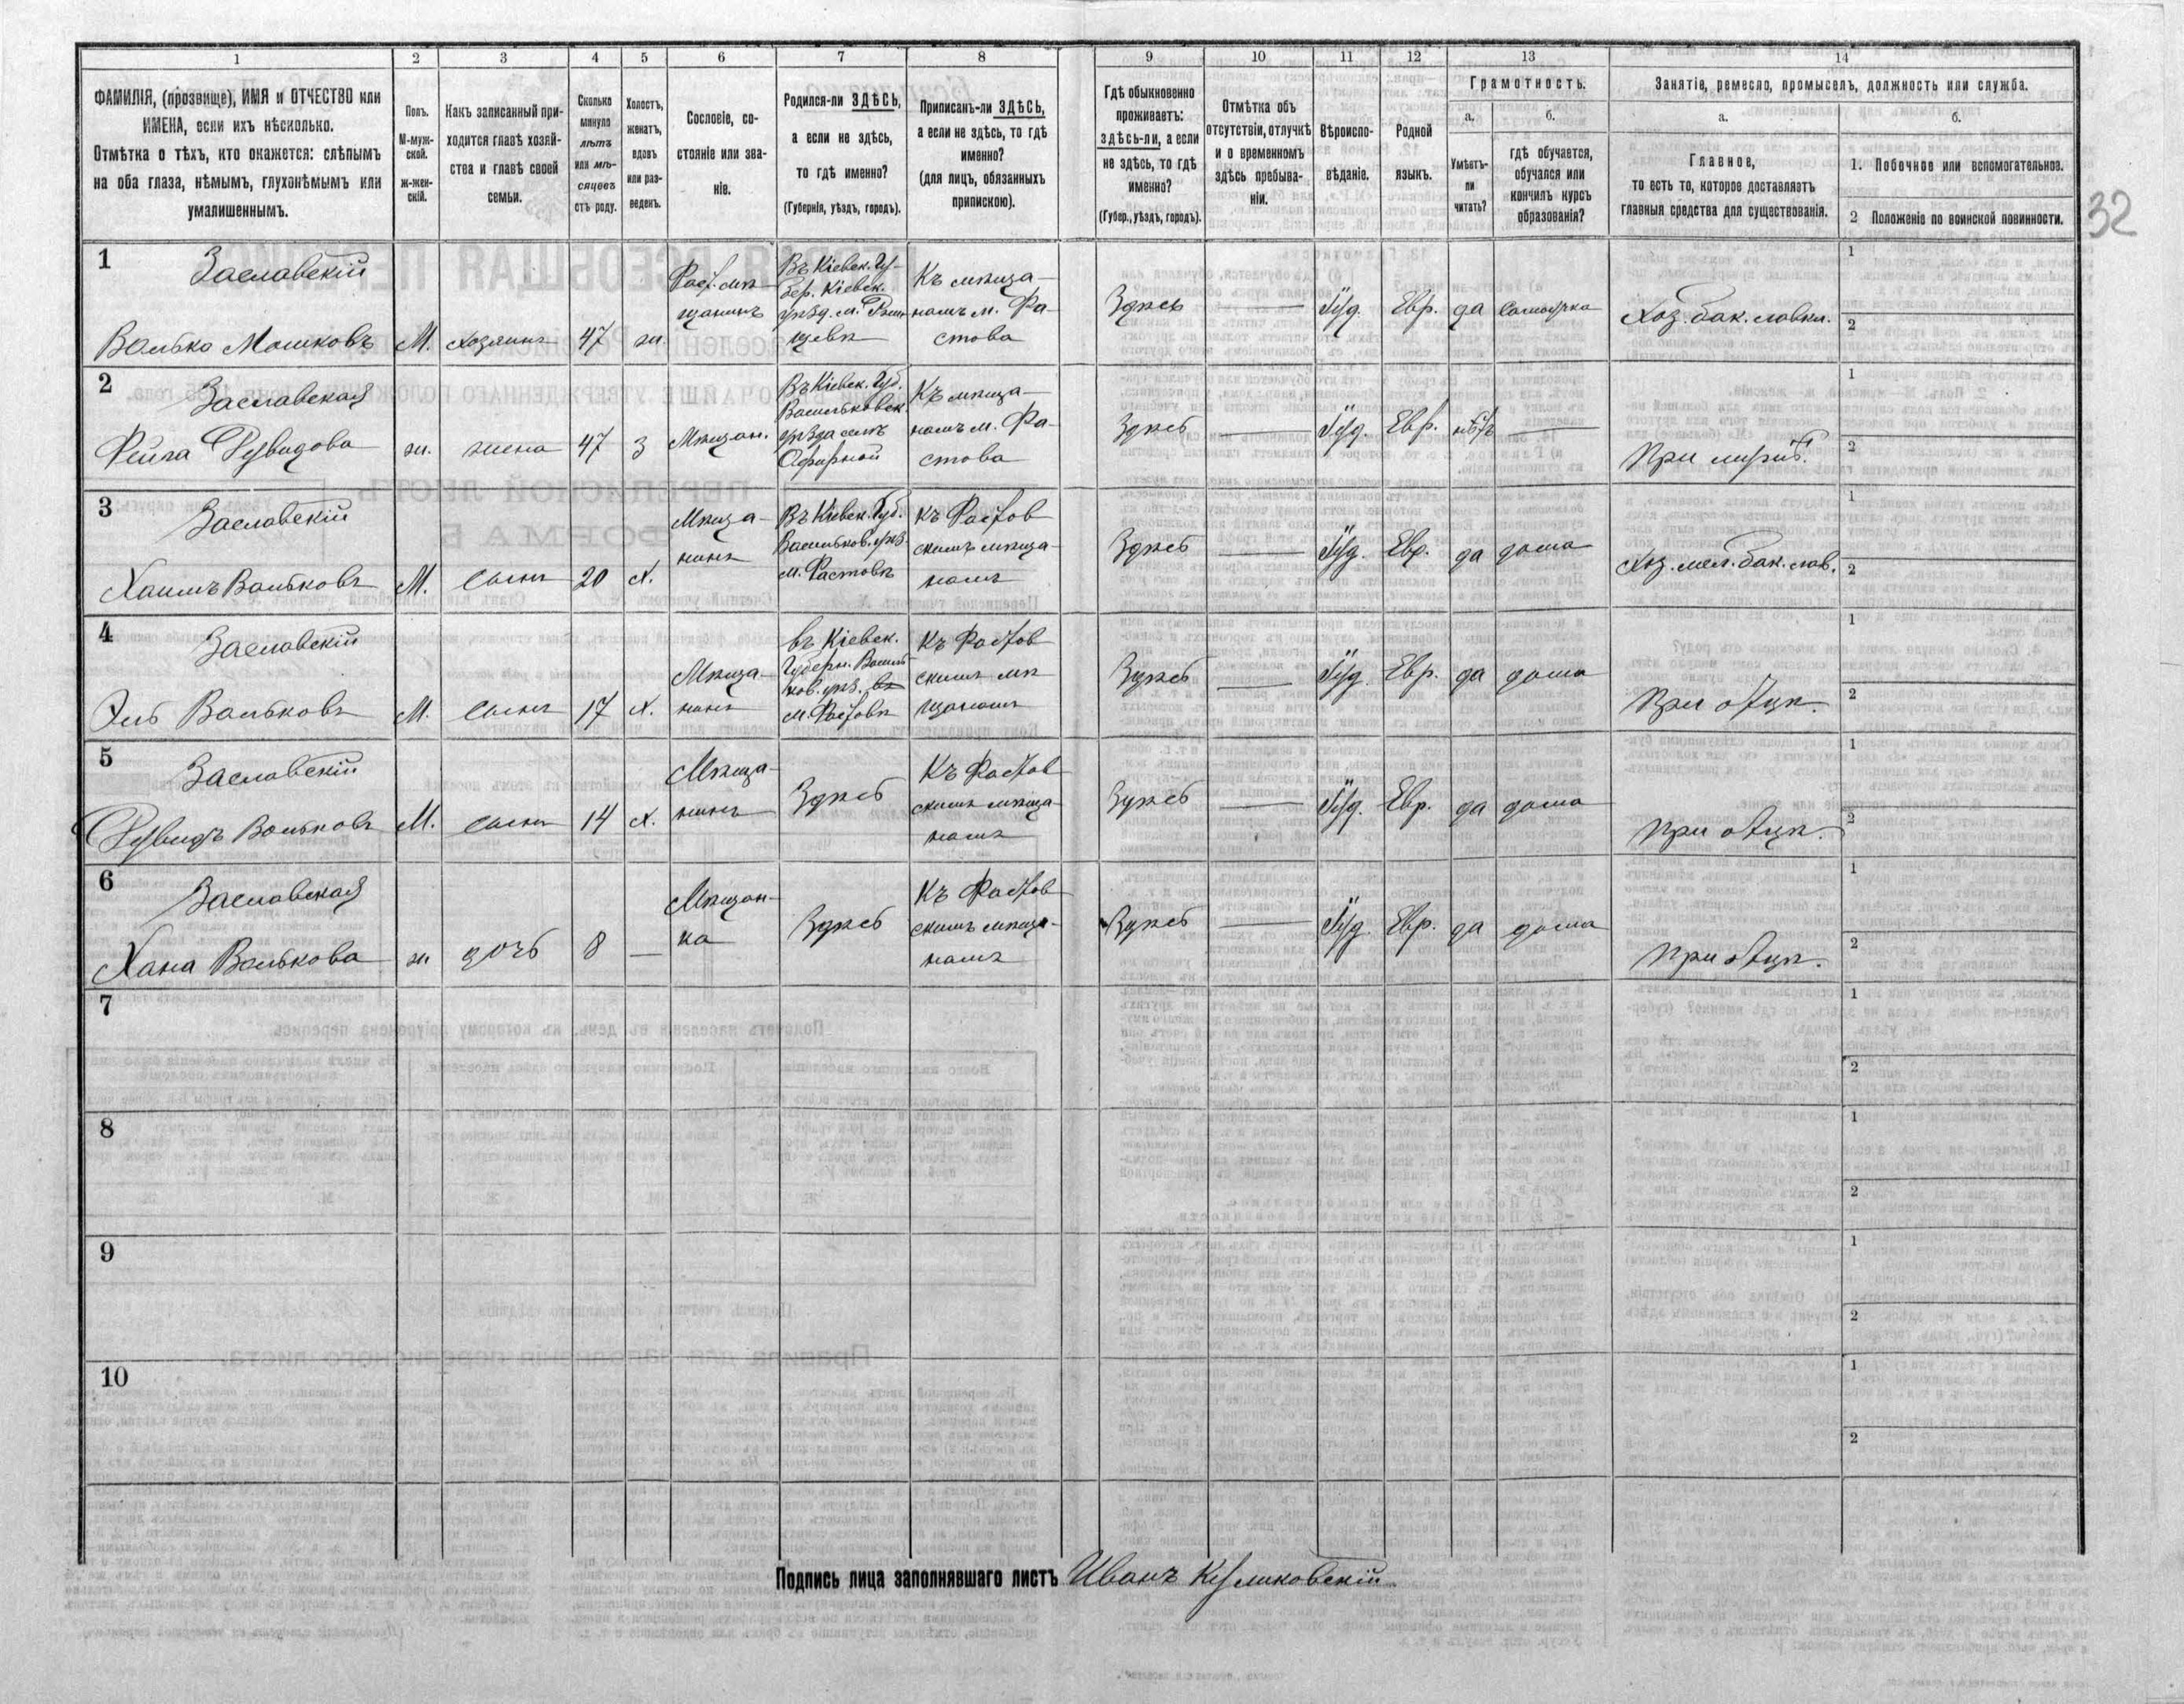 1 2 3 4 5 6 7 8 9 10 11 12 13 14
ФАМИЛІЯ, (прозвище), ИМЯ и ОТЧЕСТВО или
ИМЕНА, если ихъ нѣсколько.
Отмѣтка о тѣхъ, кто окажется: слѣпымъ
на оба глаза, нѣмымъ, глухонѣмымъ или
умалишеннымъ.
Полъ.
М-муж-
ской.
ж-жен-
скій.
Какъ записанный при-
ходится главѣ хозяй-
ства и главѣ своей
семьи.
Сколько
минуло
лѣтъ
или мѣ-
сяцевъ
отъ роду.
Холостъ,
женатъ,
вдовъ
или раз-
веденъ.
Сословіе, со-
стояніе или зва-
ніе.
Родился-ли ЗДѢСЬ,
а если не здѣсь,
то гдѣ именно?
(Губернія, уѣздъ, городъ).
Приписанъ-ли ЗДѢСЬ,
а если не здѣсь, то гдѣ
именно?
(для лицъ, обязанныхъ
припискою).
Гдѣ обыкновенно
проживаетъ:
здѣсь-ли, а если
не здѣсь, то гдѣ
именно?
(Губер., уѣздъ, городъ).
Отмѣтка объ
отсутствіи, отлучкѣ
и о временномъ
здѣсь пребыва-
ніи.
Вѣроиспо-
вѣданіе.
Родной
языкъ.
Грамотность.
а.
Умѣетъ-
ли
читать?
б.
гдѣ обучается,
обучался или
кончилъ курсъ
образованія?
Занятіе, ремесло, промыселъ, должность или служба.
а.
Главное,
то есть то, которое доставляетъ
главныя средства для существованія.
б.
1. Побочное или вспомогательное.
2 Положеніе по воинской повинности.
32
1
Заславскій
Волько Мошковъ
М. хозяинъ 47 ж.
Фаст. мѣ-
щанинъ
Въ Кіевск. Гу-
бер. Кіевск.
уѣзд. м.
Къ мѣща-
намъ м. Фа-
стова
Здѣсь — Іуд. Евр. да
Хоз. бак. лавки.
1
2
2
Заславская
Фейга Рувидова
ж. жена 47 З Мѣщан.
Въ Кіевск. Губ.
Васильковск.
уѣзда
Къ мѣща-
намъ м. Фа-
стова
Здѣсь — Іуд. Евр. нѣтъ —
При мужѣ.
1
2
3
Заславскій
Хаимъ Вольковъ
М. сынъ 20 х.
Мѣща-
нинъ
Въ Кіевск. Губ.
Васильков. уѣз.
м. Фастовѣ
Къ Фастов
скимъ мѣща-
намъ
Здѣсь — Іуд. Евр. да дома
Хоз. мел. бак. лав.
1
2
4
Заславскій
Эль Вольковъ
М. сынъ 17 х.
Мѣща-
нинъ
въ Кіевск.
Губерн. Василь-
ков. уѣз. въ
м. Фастовѣ
Къ Фастов
скимъ мѣ
щанамъ
Здѣсь — Іуд. Евр. да дома
При отцѣ.
1
2
5
Заславскій
Рувидъ Вольковъ
М. сынъ 14 х.
Мѣща-
нинъ
Здѣсь
Къ Фастов
скимъ мѣща-
намъ
Здѣсь — Іуд. Евр. да дома
При отцѣ.
1
2
6
Заславская
Хана Волькова
ж дочь 8 —
Мѣщан-
ка
Здѣсь
Къ Фастов
скимъ мѣща-
намъ
Здѣсь — Іуд. Евр. да дома
При отцѣ.
1
2
7
1
2
8
1
2
9
1
2
10
1
2
Подпись лица заполнявшаго листъ Иванъ